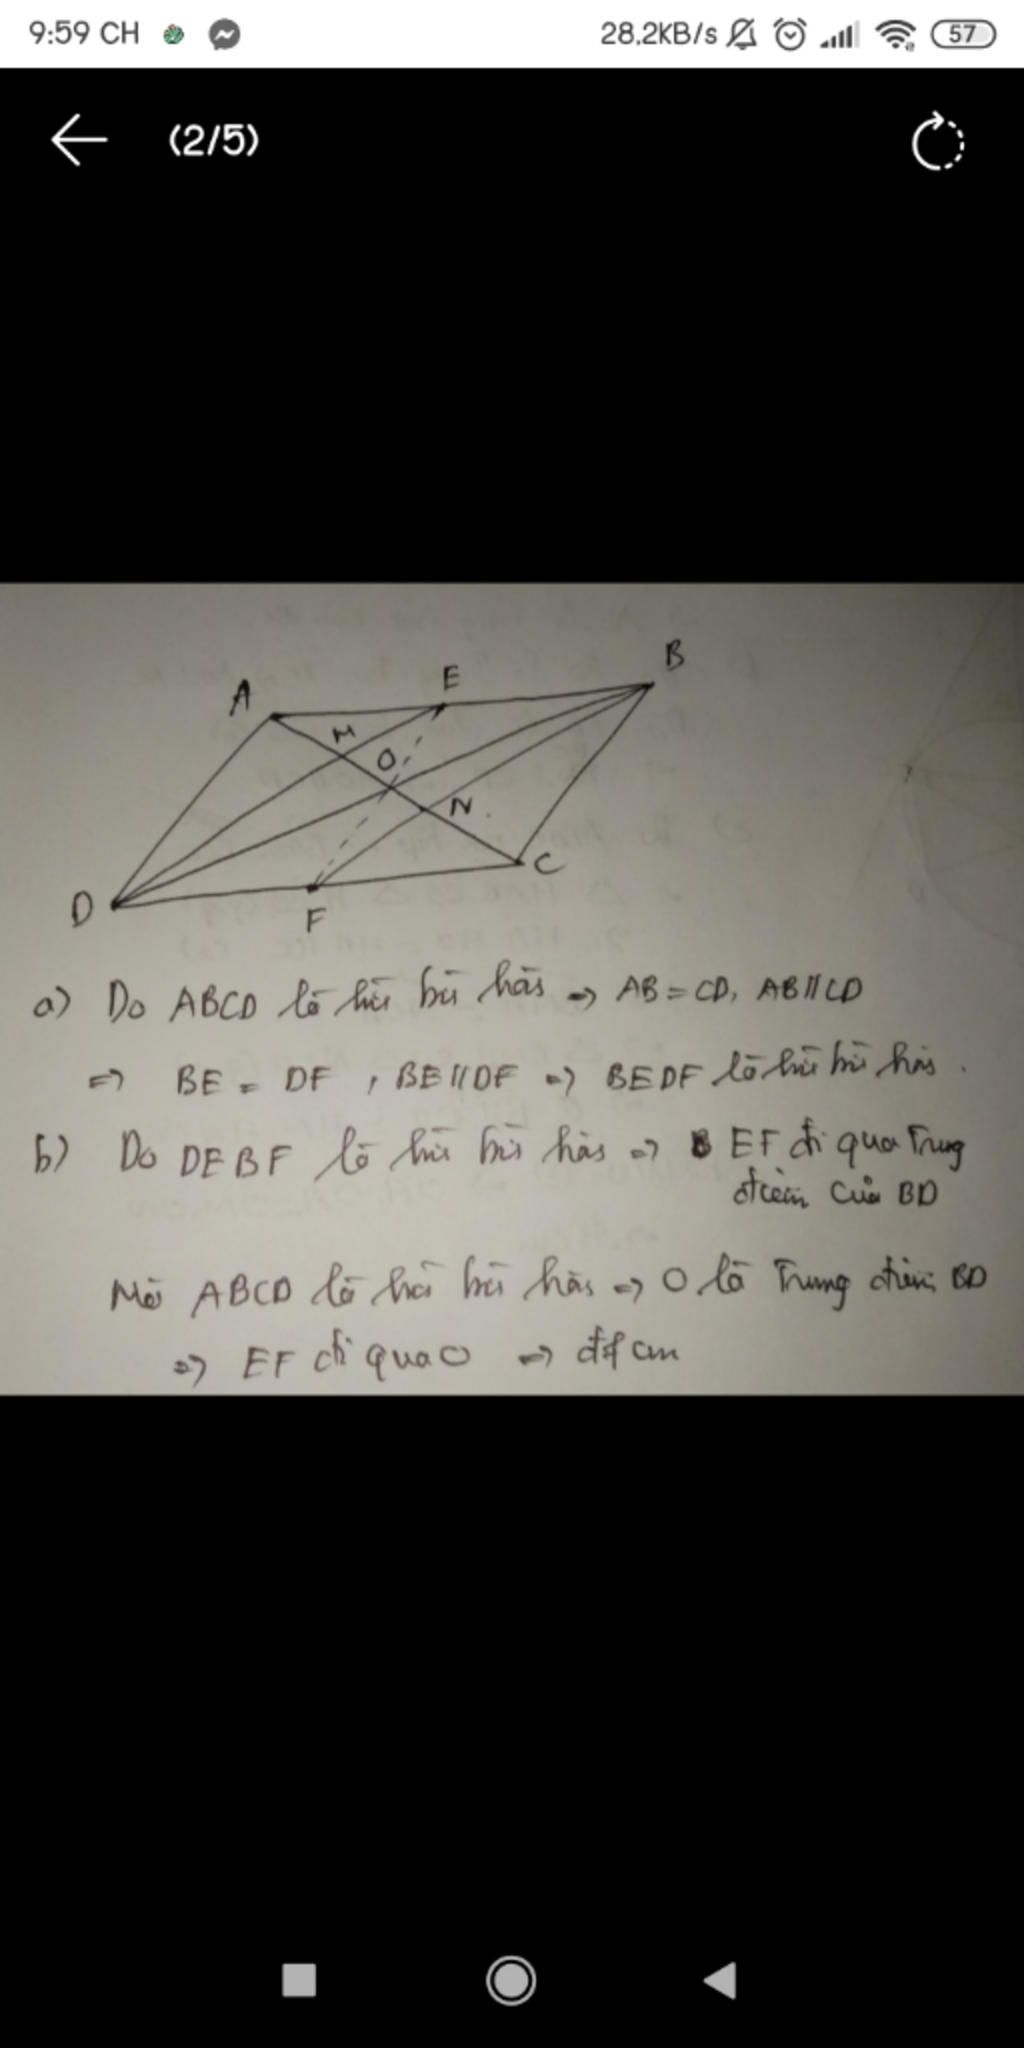 9:59 CH
28,2KB/s
57
(2/5)
A
E
B
M
O
N
D
F
C
a) Do ABCD là hìn bìn hàn => AB = CD, AB // CD
=> BE = DF , BE // DF => BEDF là hìn bìn hàn .
b) Do DEBF là hìn bìn hàn => EF đi qua Trung
điểm của BD
Mà ABCD là hìn bìn hàn => O là Trung điểm BD
=> EF đi qua O => đfcm